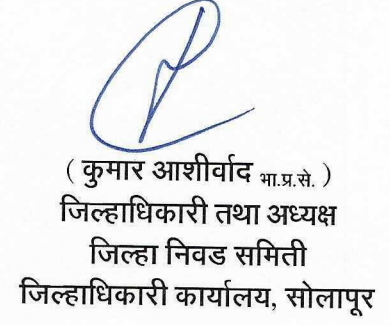 ( कुमार आशीर्वाद भा.प्र.से. )
जिल्हाधिकारी तथा अध्यक्ष
जिल्हा निवड समिती
जिल्हाधिकारी कार्यालय, सोलापूर